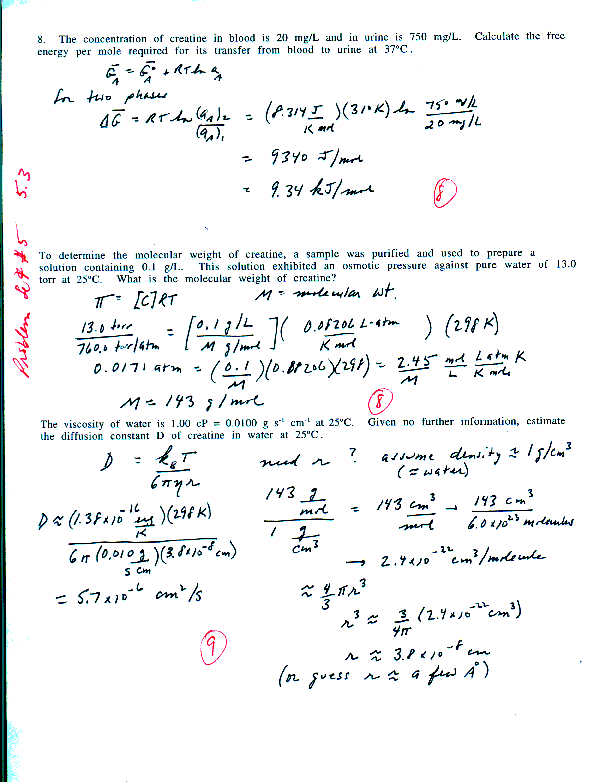 8. The concentration of creatine in blood is 20 mg/L and in urine is 750 mg/L. Calculate the free
energy per mole required for its transfer from blood to urine at 37°C.
G̅_A = G̅°_A + RT ln a_A
for two phases
ΔG̅ = RT ln (a_A)₂/(a_A)₁ = (8.314 J/K mol)(310K) ln 750 mg/L / 20 mg/L
= 9340 J/mol
= 9.34 kJ/mol
8
Problem Set #5 5.3
To determine the molecular weight of creatine, a sample was purified and used to prepare a
solution containing 0.1 g/L.. This solution exhibited an osmotic pressure against pure water of 13.0
torr at 25°C. What is the molecular weight of creatine?
π = [C]RT M = molecular wt.
13.0 torr / 760.0 torr/atm = [0.1 g/L / M g/mol] (0.08206 L-atm / K mol) (298 K)
0.0171 atm = (0.1/M)(0.08206)(298) = 2.45/M mol/L L atm/K mol K
M = 143 g/mol
8
The viscosity of water is 1.00 cP = 0.0100 g s⁻¹ cm⁻¹ at 25°C. Given no further information, estimate
the diffusion constant D of creatine in water at 25°C.
D = k_B T / 6πηr need r ? assume density ≈ 1 g/cm³
(= water)
143 g/mol / 1 g/cm³ = 143 cm³/mol → 143 cm³ / 6.0 x 10²³ molecules
D ≈ (1.38 x 10⁻¹⁶ erg/K)(298K) / 6π (0.010 g/s cm)(3.8 x 10⁻⁸ cm)
→ 2.4 x 10⁻²² cm³/molecule
= 5.7 x 10⁻⁶ cm²/s
≈ 4/3 πr³
r³ ≈ 3/4π (2.4 x 10⁻²² cm³)
9
r ≈ 3.8 x 10⁻⁸ cm
(or guess r ≈ a few Å)